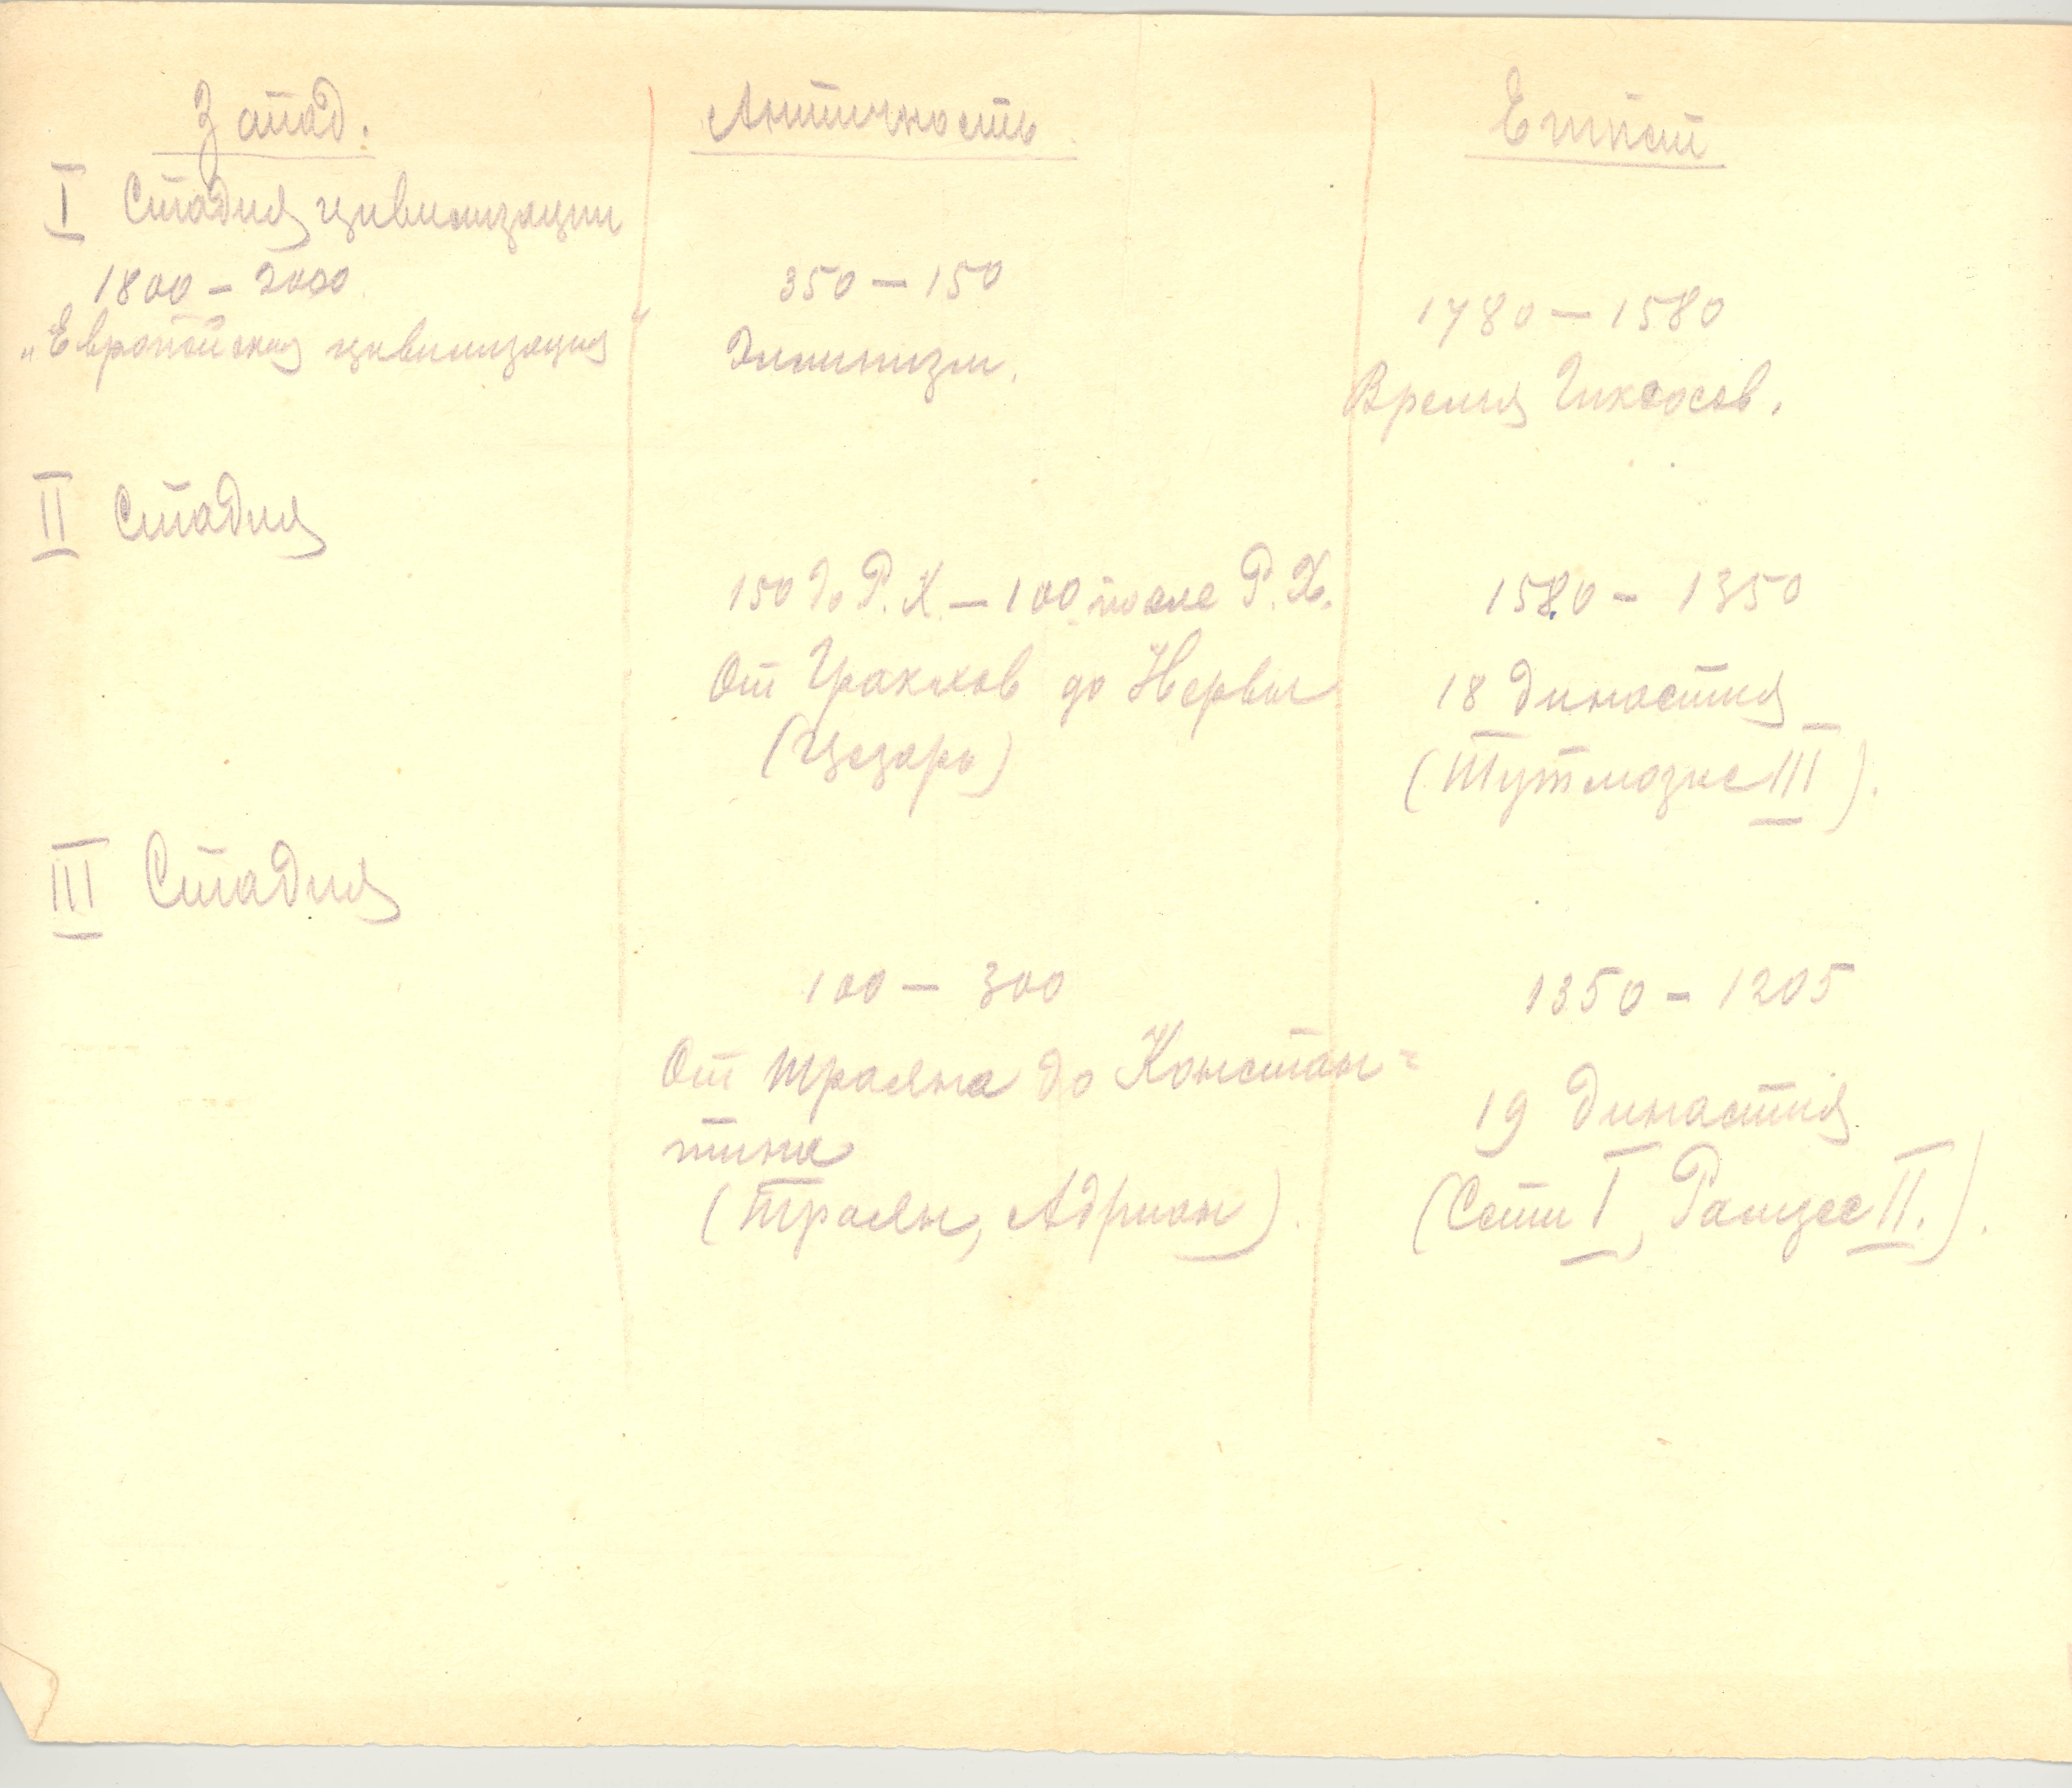 Запад.
Античность.
Египет
I Стадия цивилизации
1800 – 2000
„Европейская цивилизация“
350 – 150
Эллинизм.
1780 – 1580
Время Гиксосов.
II Стадия
150 до Р.Х. – 100 после Р.Х.
От Гракхов до Нервы
(Цезарь)
1580 – 1350
18 династия
(Тутмозис III).
III Стадия
100 – 300
От Траяна до Констан=
тина
(Траян, Адриан).
1350 – 1205
19 династия
(Сети I, Рамзес II.).